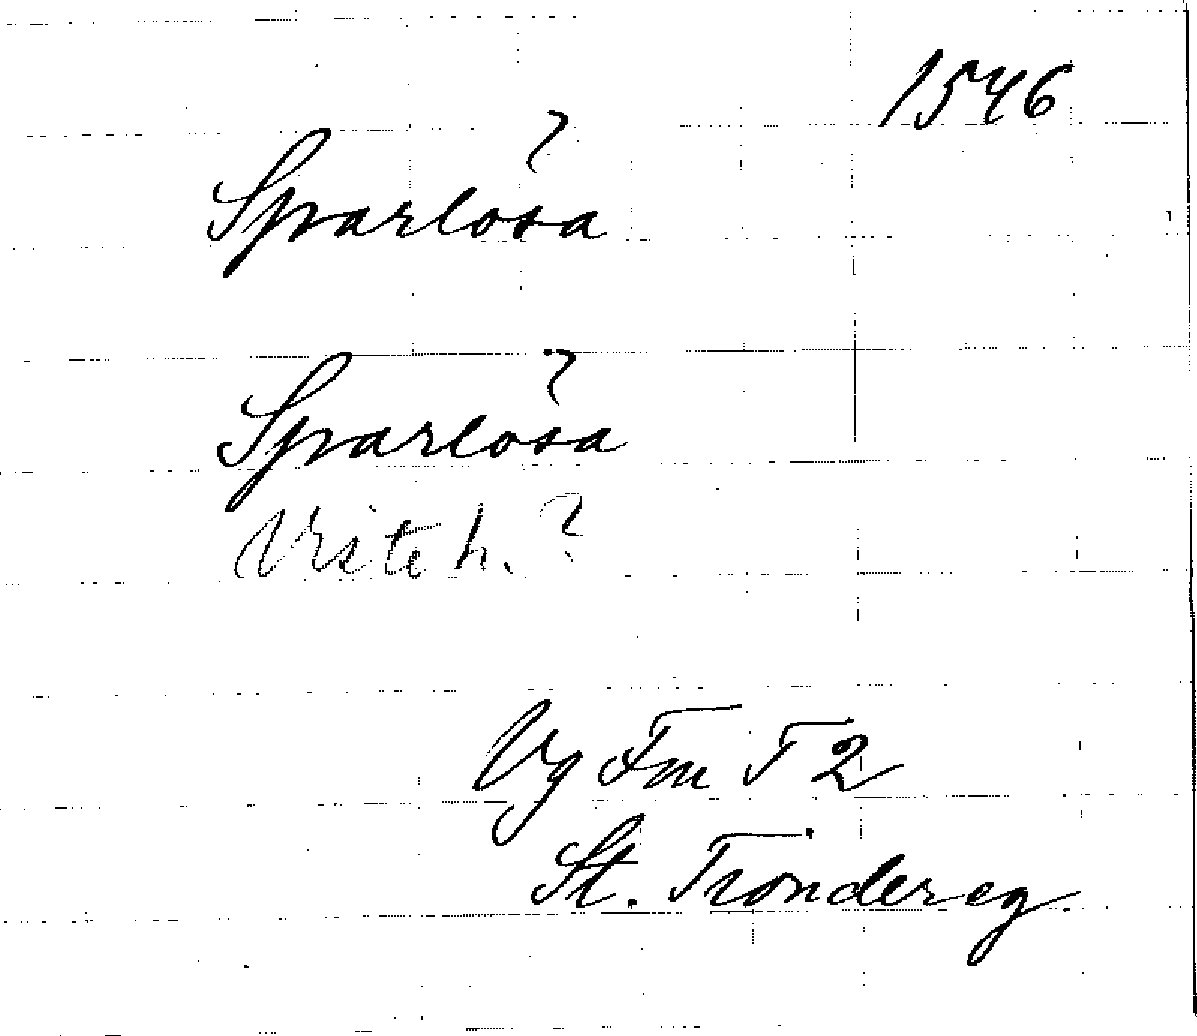 1546
?
Sparlösa
?
Sparlösa
Viste h. ?
Vg Fm T 2
St. Tiondereg.